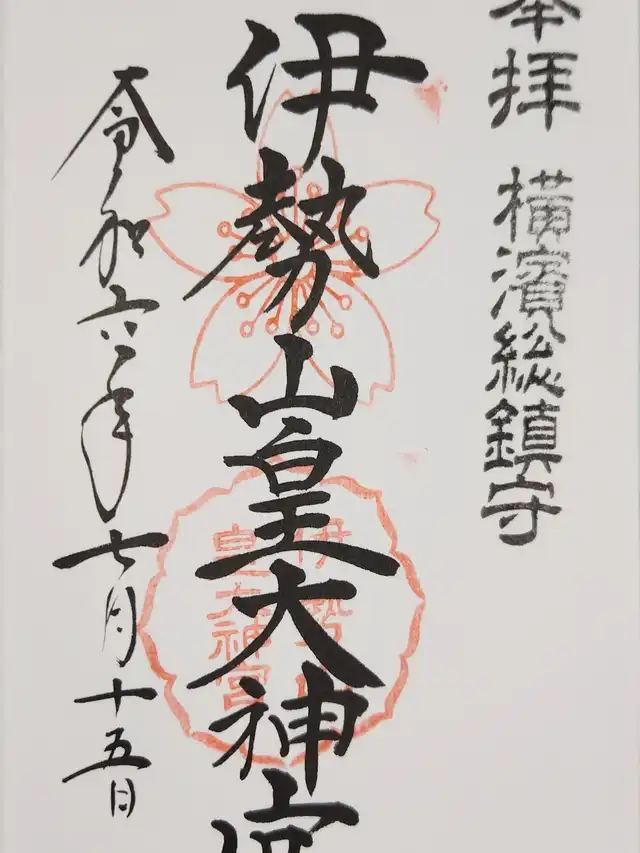 奉拝 横濱総鎮守
伊勢山皇大神宮
伊勢山
皇大神宮
令和六年七月十五日